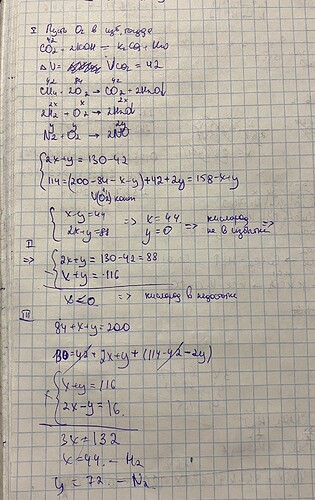 I Пусть O₂ в изб., тогда
42
CO₂ + 2KOH = K₂CO₃ + H₂O
ΔV = V CO₂ = 42
42 84 42
CH₄ + 2O₂ → CO₂ + 2H₂O
2x x 2x
2H₂ + O₂ → 2H₂O
y y 2y
N₂ + O₂ → 2NO
2x + y = 130 - 42
114 = (200 - 84 - x - y) + 42 + 2y = 158 - x + y
V(O₂) ост
x - y = 44 => x = 44 => кислород =>
2x + y = 88 y = 0 не в избытке
II
=> 2x + y = 130 - 42 = 88
x + y = 116
x < 0 => кислород в недостатке
III
84 + x + y = 200
130 = 42 + 2x + y + (114 - 42 - 2y)
x + y = 116
2x - y = 16
3x = 132
x = 44. - H₂
y = 72. - N₂